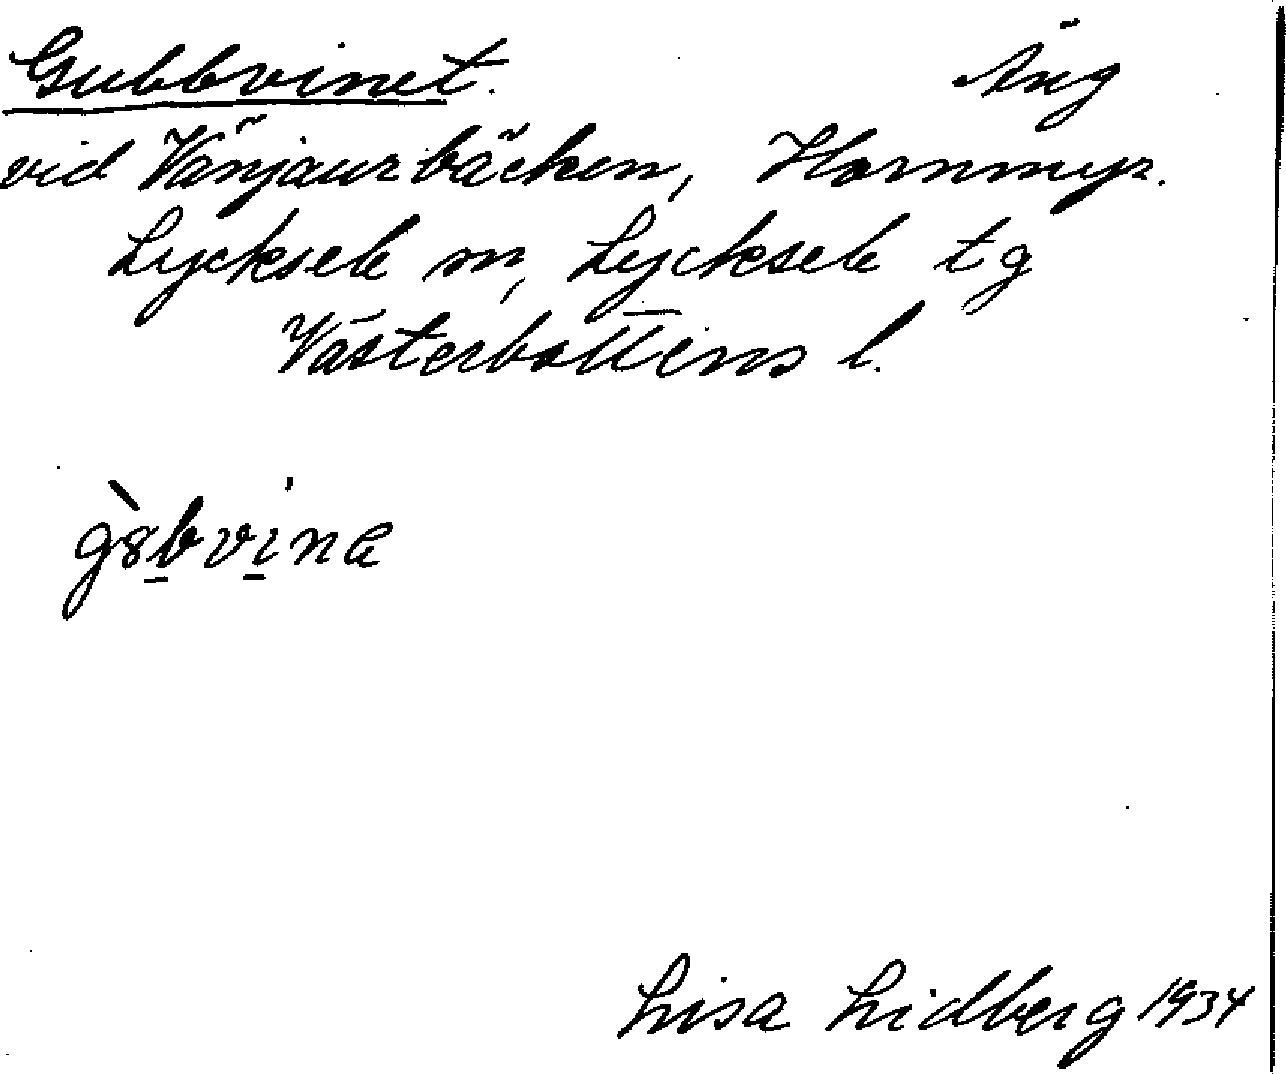 Gubbvinet. Äng
vid Vänjaurbäcken, Hornmyr.
Lycksele sn, Lycksele tg
Västerbottens l.
gɞ̀b̲vi̲na
Lisa Lidberg 1934